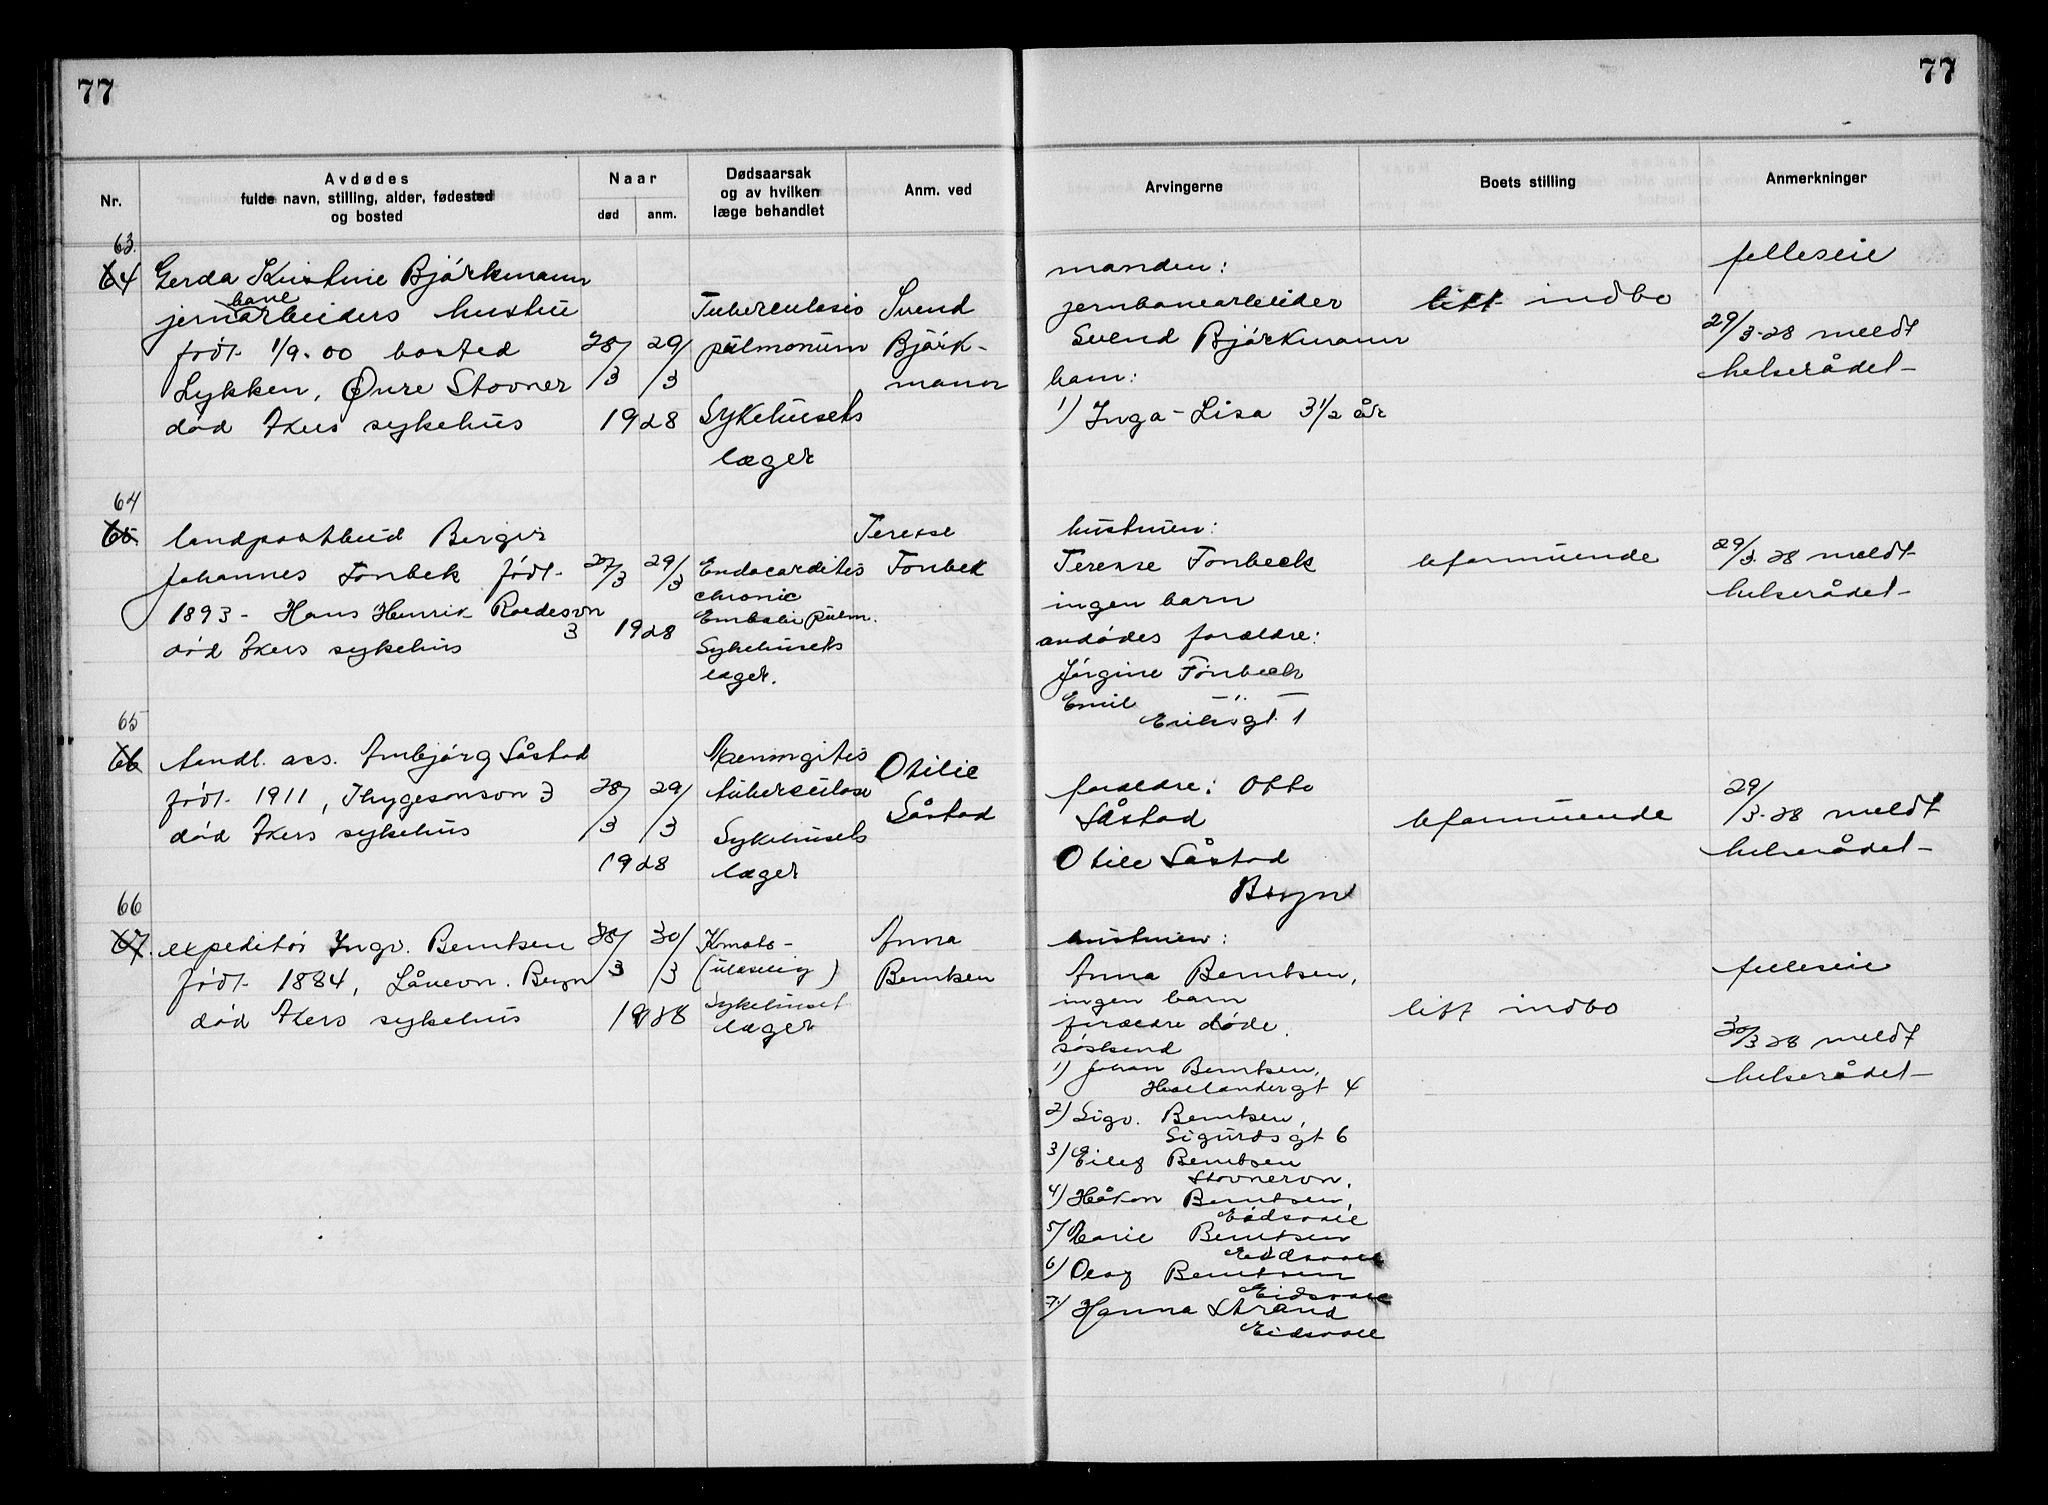 77
77
Nr.
Avdødes
fulde navn, stilling, alder, fødested
og bosted
Naar
død
anm.
Dødsaarsak
og av hvilken
læge behandlet
Anm. ved
Arvingerne
Boets stilling
Anmerkninger
63.
64
Gerda Kristine Björkmann
bane
jernarbeiders hustru
født 1/9-00 bosted
Lykken, Øvre Stovner
død Akers sykehus
28/3 29/3
1928
Tuberculosis
pulmonum
Sykehusets
læger
Svend
Björk-
mann
manden:
jernbanearbeider
Svend Björkmann
barn:
1) Inga-Lisa 3 1/2 år
litt indbo
felleseie
29/3-28 meldt
helserådet
64
65.
landpostbud Birger
Johannes Fonbek født
1893 - Hans Henrik Roedesvn
3
død Akers sykehus
27/3 29/3
1928
Endocarditis
chronic
Emboli pulm.
Sykehusets
læger.
Terese
Fonbek
hustruen:
Terese Fonbeck
ingen barn
avdødes forældre:
Jörgine Fonbeck
Emil —"—
Eriksgt. 1
uformuende
29/3-28 meldt
helserådet
65
66
handl. ass. Arnbjørg Såstad
født 1911, Thygesonsvn 3
død Akers sykehus
28/3 29/3
1928
Meningitis
tuberculose
Sykehusets
læger
Otilie
Såstad
forældre: Otto
Såstad
Otilie Såstad
Bryn
uformuende
29/3-28 meldt
helserådet
66
67.
expeditør Ingv. Berntsen
født 1884, Lånevn. Bryn
død Akers sykehus
28/3 30/3
1928
(ulæselig)
Sykehuset
læger
Anna
Berntsen
hustruen:
Anna Berntsen,
ingen barn
forældre døde.
søskend
1) Johan Berntsen,
gt 4
2) Sigv. Berntsen,
Sigurds gt 6
3) Eilef Berntsen
Stovnervn.
4) Håkon Berntsen,
Eidsvoll
5) Berntsen
Eidsvoll
6) Olaf Berntsen
Eidsvoll
7) Hanna Strand
Eidsvoll
litt indbo
felleseie
30/3-28 meldt
helserådet